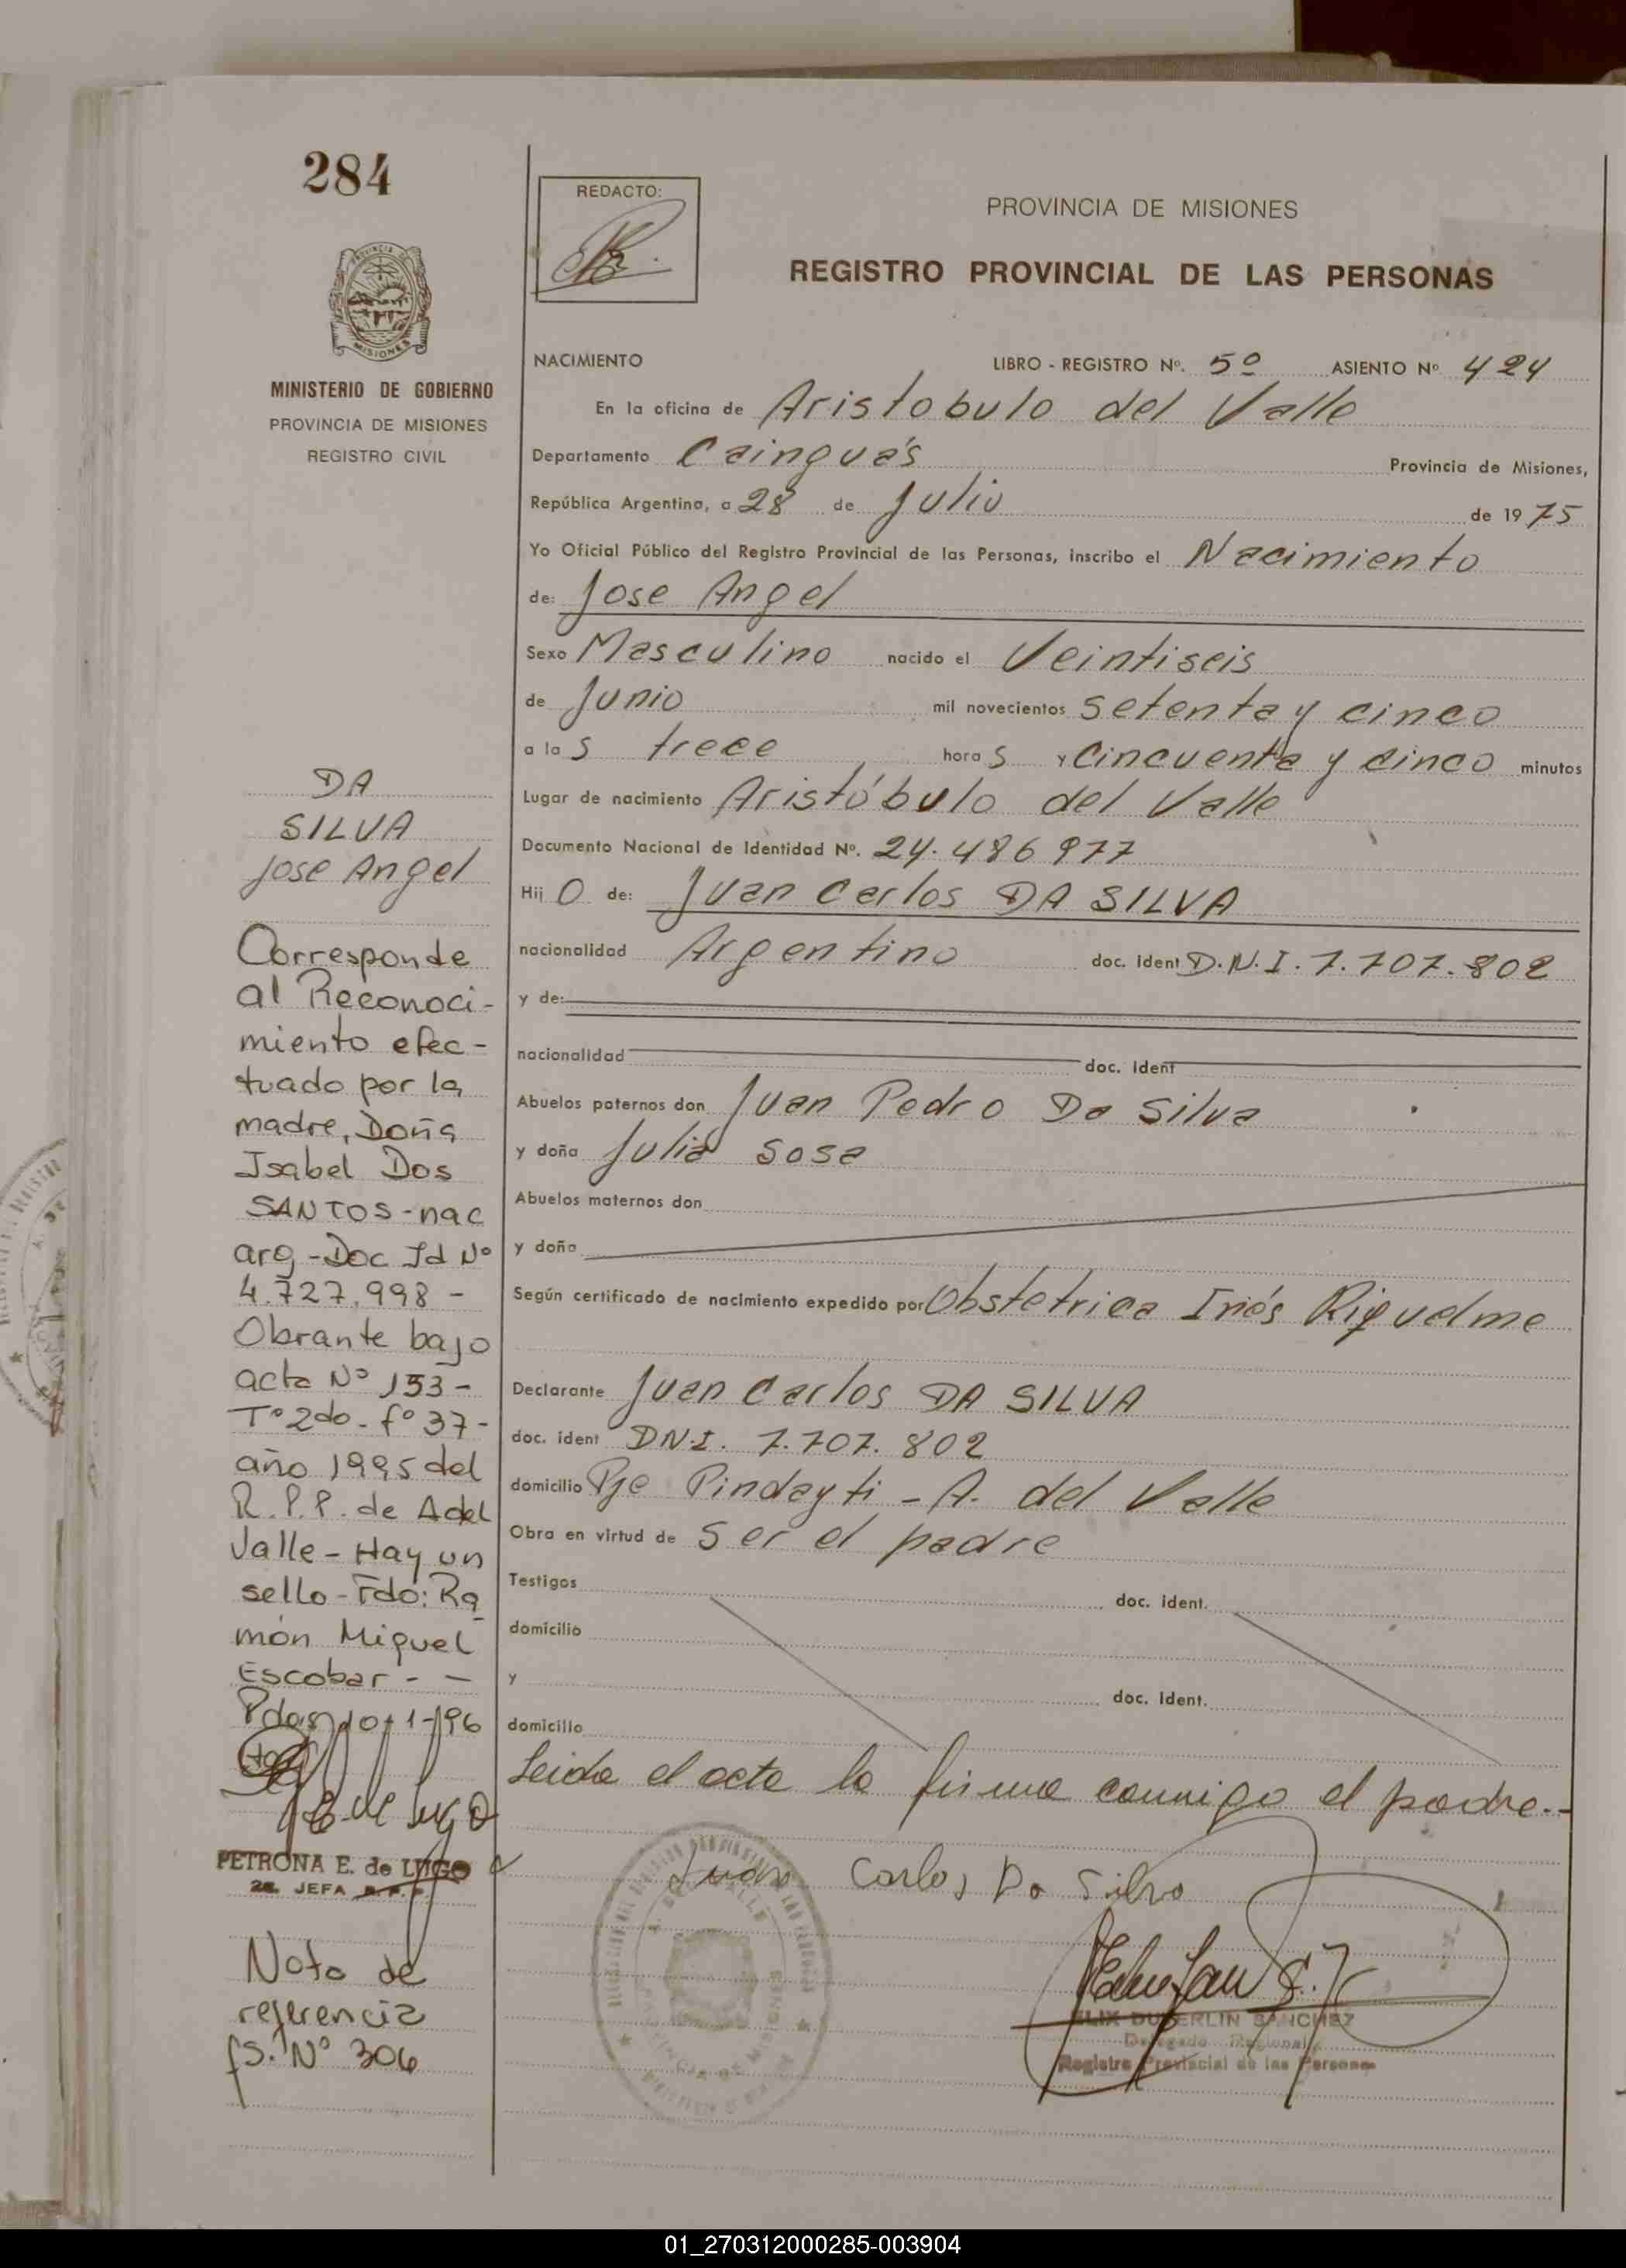 284
PROVINCIA DE
MISIONES
MINISTERIO DE GOBIERNO
PROVINCIA DE MISIONES
REGISTRO CIVIL
DA
SILVA
Jose Angel
Corresponde
al Reconoci-
miento efec-
tuado por la
madre, Doña
Isabel Dos
SANTOS-nac
arg-Doc Id Nº
4.727.998-
Obrante bajo
acta Nº 153-
Tº 2do-fº 37-
año 1995 del
R.P.P. de A del
Valle-Hay un
sello-Fdo: Ra
món Miguel
Escobar - -
Pdas 10-1-96
PETRONA E. de LUGO
JEFA R.P.P.
Nota de
referencia
fs. Nº 306
REDACTO:
PROVINCIA DE MISIONES
REGISTRO PROVINCIAL DE LAS PERSONAS
NACIMIENTO LIBRO - REGISTRO Nº. 5º ASIENTO Nº 424
En la oficina de Aristobulo del Valle
Departamento Cainguás Provincia de Misiones,
República Argentina, a 28 de Julio de 1975
Yo Oficial Público del Registro Provincial de las Personas, inscribo el Nacimiento
de: Jose Angel
Sexo Masculino nacido el Veintiseis
de Junio mil novecientos setenta y cinco
a las trece horas y Cincuenta y cinco minutos
Lugar de nacimiento Aristóbulo del Valle
Documento Nacional de Identidad Nº. 24.486977
Hijo de: Juan Carlos DA SILVA
nacionalidad Argentino doc. ident D.N.I. 7.707.802
y de:
nacionalidad doc. ident
Abuelos paternos don Juan Pedro Da Silva
y doña Julia Sosa
Abuelos maternos don
y doña
Según certificado de nacimiento expedido por Obstetrica Inés Riquelme
Declarante Juan Carlos DA SILVA
doc. ident DN.I. 7.707.802
domicilio Pje Pindayti - A. del Valle
Obra en virtud de ser el padre
Testigos doc. ident.
domicilio
y doc. ident.
domicilio
Leida el acta la firma conmigo el padre.-
Juan Carlos Da Silva
DUBERLIN SANCHEZ
Delegado Regional
Registro Provincial de las Personas
01_270312000285-003904